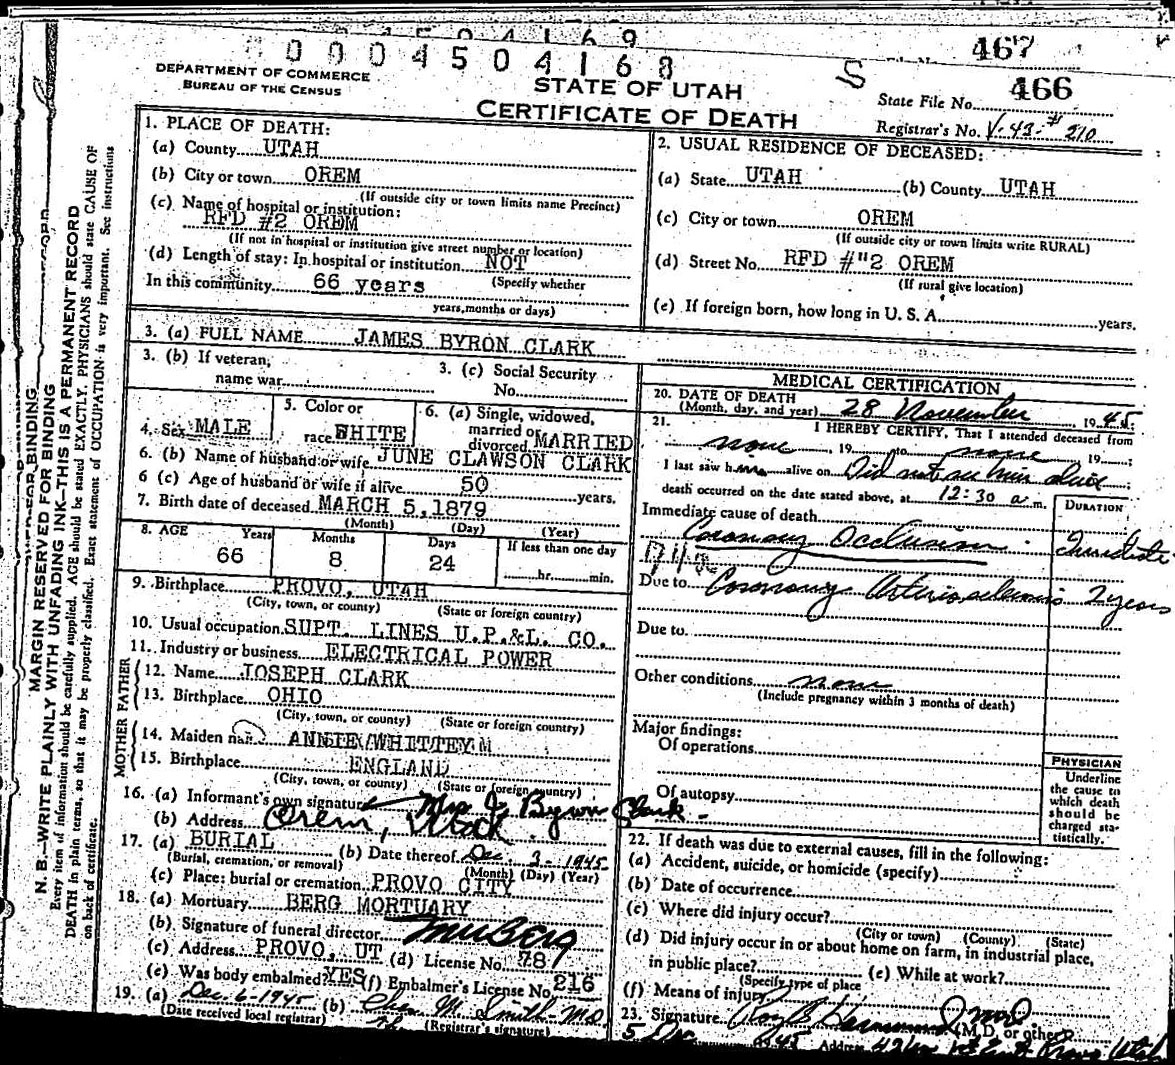 0 0 0 0 4 5 0 4 1 6 8
467
DEPARTMENT OF COMMERCE
BUREAU OF THE CENSUS
STATE OF UTAH
CERTIFICATE OF DEATH
S
State File No. 466
Registrar's No. V-43-#210
MARGIN RESERVED FOR BINDING
N. B.—WRITE PLAINLY WITH UNFADING INK—THIS IS A PERMANENT RECORD
Every item of information should be carefully supplied. AGE should be stated EXACTLY. PHYSICIANS should state CAUSE OF
DEATH in plain terms, so that it may be properly classified. Exact statement of OCCUPATION is very important. See instructions
on back of certificate.
1. PLACE OF DEATH:
(a) County UTAH
(b) City or town OREM
(If outside city or town limits name Precinct)
(c) Name of hospital or institution:
RFD #2 OREM
(If not in hospital or institution give street number or location)
(d) Length of stay: In hospital or institution NOT
(Specify whether
In this community 66 years
years, months or days)
2. USUAL RESIDENCE OF DECEASED:
(a) State UTAH (b) County UTAH
(c) City or town OREM
(If outside city or town limits write RURAL)
(d) Street No. RFD #"2 OREM
(If rural give location)
(e) If foreign born, how long in U. S. A. years.
3. (a) FULL NAME JAMES BYRON CLARK
3. (b) If veteran, name war
3. (c) Social Security No.
4. Sex MALE
5. Color or race WHITE
6. (a) Single, widowed, married or divorced MARRIED
6. (b) Name of husband or wife JUNE CLAWSON CLARK
6 (c) Age of husband or wife if alive 50 years.
7. Birth date of deceased MARCH 5, 1879
(Month) (Day) (Year)
8. AGE Years Months Days If less than one day
66 8 24 hr. min.
9. Birthplace PROVO, UTAH
(City, town, or county) (State or foreign country)
10. Usual occupation SUPT. LINES U.P.&L. CO.
11. Industry or business ELECTRICAL POWER
FATHER
12. Name JOSEPH CLARK
13. Birthplace OHIO
(City, town, or county) (State or foreign country)
MOTHER
14. Maiden name ANNIE WHITTEY M
15. Birthplace ENGLAND
(City, town, or county) (State or foreign country)
16. (a) Informant's own signature Mrs J. Byron Clark.
(b) Address Orem, Utah
17. (a) BURIAL (b) Date thereof Dec. 3-1945
(Burial, cremation, or removal) (Month) (Day) (Year)
(c) Place: burial or cremation PROVO CITY
18. (a) Mortuary BERG MORTUARY
(b) Signature of funeral director
(c) Address PROVO, UT (d) License No. 787
(e) Was body embalmed? YES (f) Embalmer's License No. 216
19. (a) Dec-6-1945 (b) M. Smith-MD
(Date received local registrar) (Registrar's signature)
MEDICAL CERTIFICATION
20. DATE OF DEATH
(Month, day, and year) 28 November 1945
21. I HEREBY CERTIFY, That I attended deceased from
none, 19 to none 19
I last saw h alive on Did not see him alive
death occurred on the date stated above, at 12:30 a m.
DURATION
Immediate cause of death
Coronary Occlusion Immediate
Due to Coronary Arteriosclerosis 2 years
Due to
Other conditions none
(Include pregnancy within 3 months of death)
Major findings:
Of operations
Of autopsy
PHYSICIAN
Underline
the cause to
which death
should be
charged sta-
tistically.
22. If death was due to external causes, fill in the following:
(a) Accident, suicide, or homicide (specify)
(b) Date of occurrence
(c) Where did injury occur?
(City or town) (County) (State)
(d) Did injury occur in or about home on farm, in industrial place,
in public place? (e) While at work?
(Specify type of place
(f) Means of injury
23. Signature Roy B Hammond (M.D. or other)
5 Dec 1945 Address Provo Utah